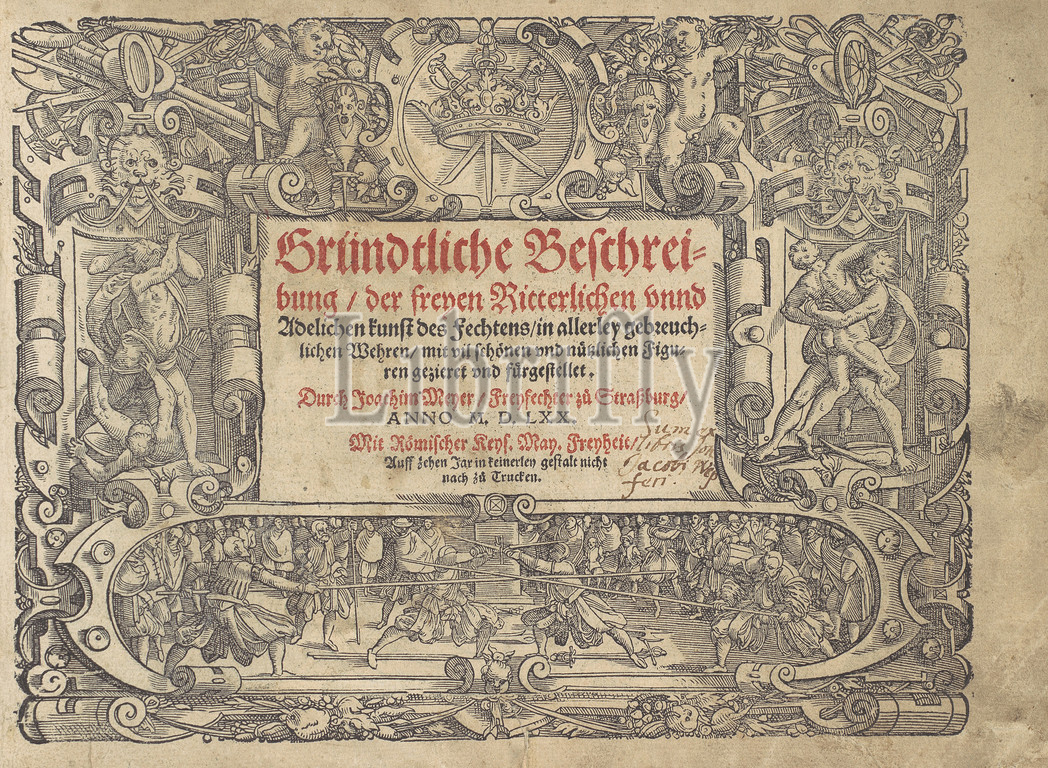 Gründtliche Beschrei-
bung / der freyen Ritterlichen vnnd
Adelichen kunst des Fechtens / in allerley gebreuch-
lichen Wehren / mit vil schönen vnd nützlichen Figu-
ren gezieret vnd fürgestellet.
Durch Joachim Meyer / Freyfechter zů Straßburg /
ANNO M. D. LXX.
Mit Römischer Keys. May. Freyheit /
Auff zehen Jar in keinerley gestalt nicht
nach zů Trucken.
Sum ex
libri
Jacobi
feri.